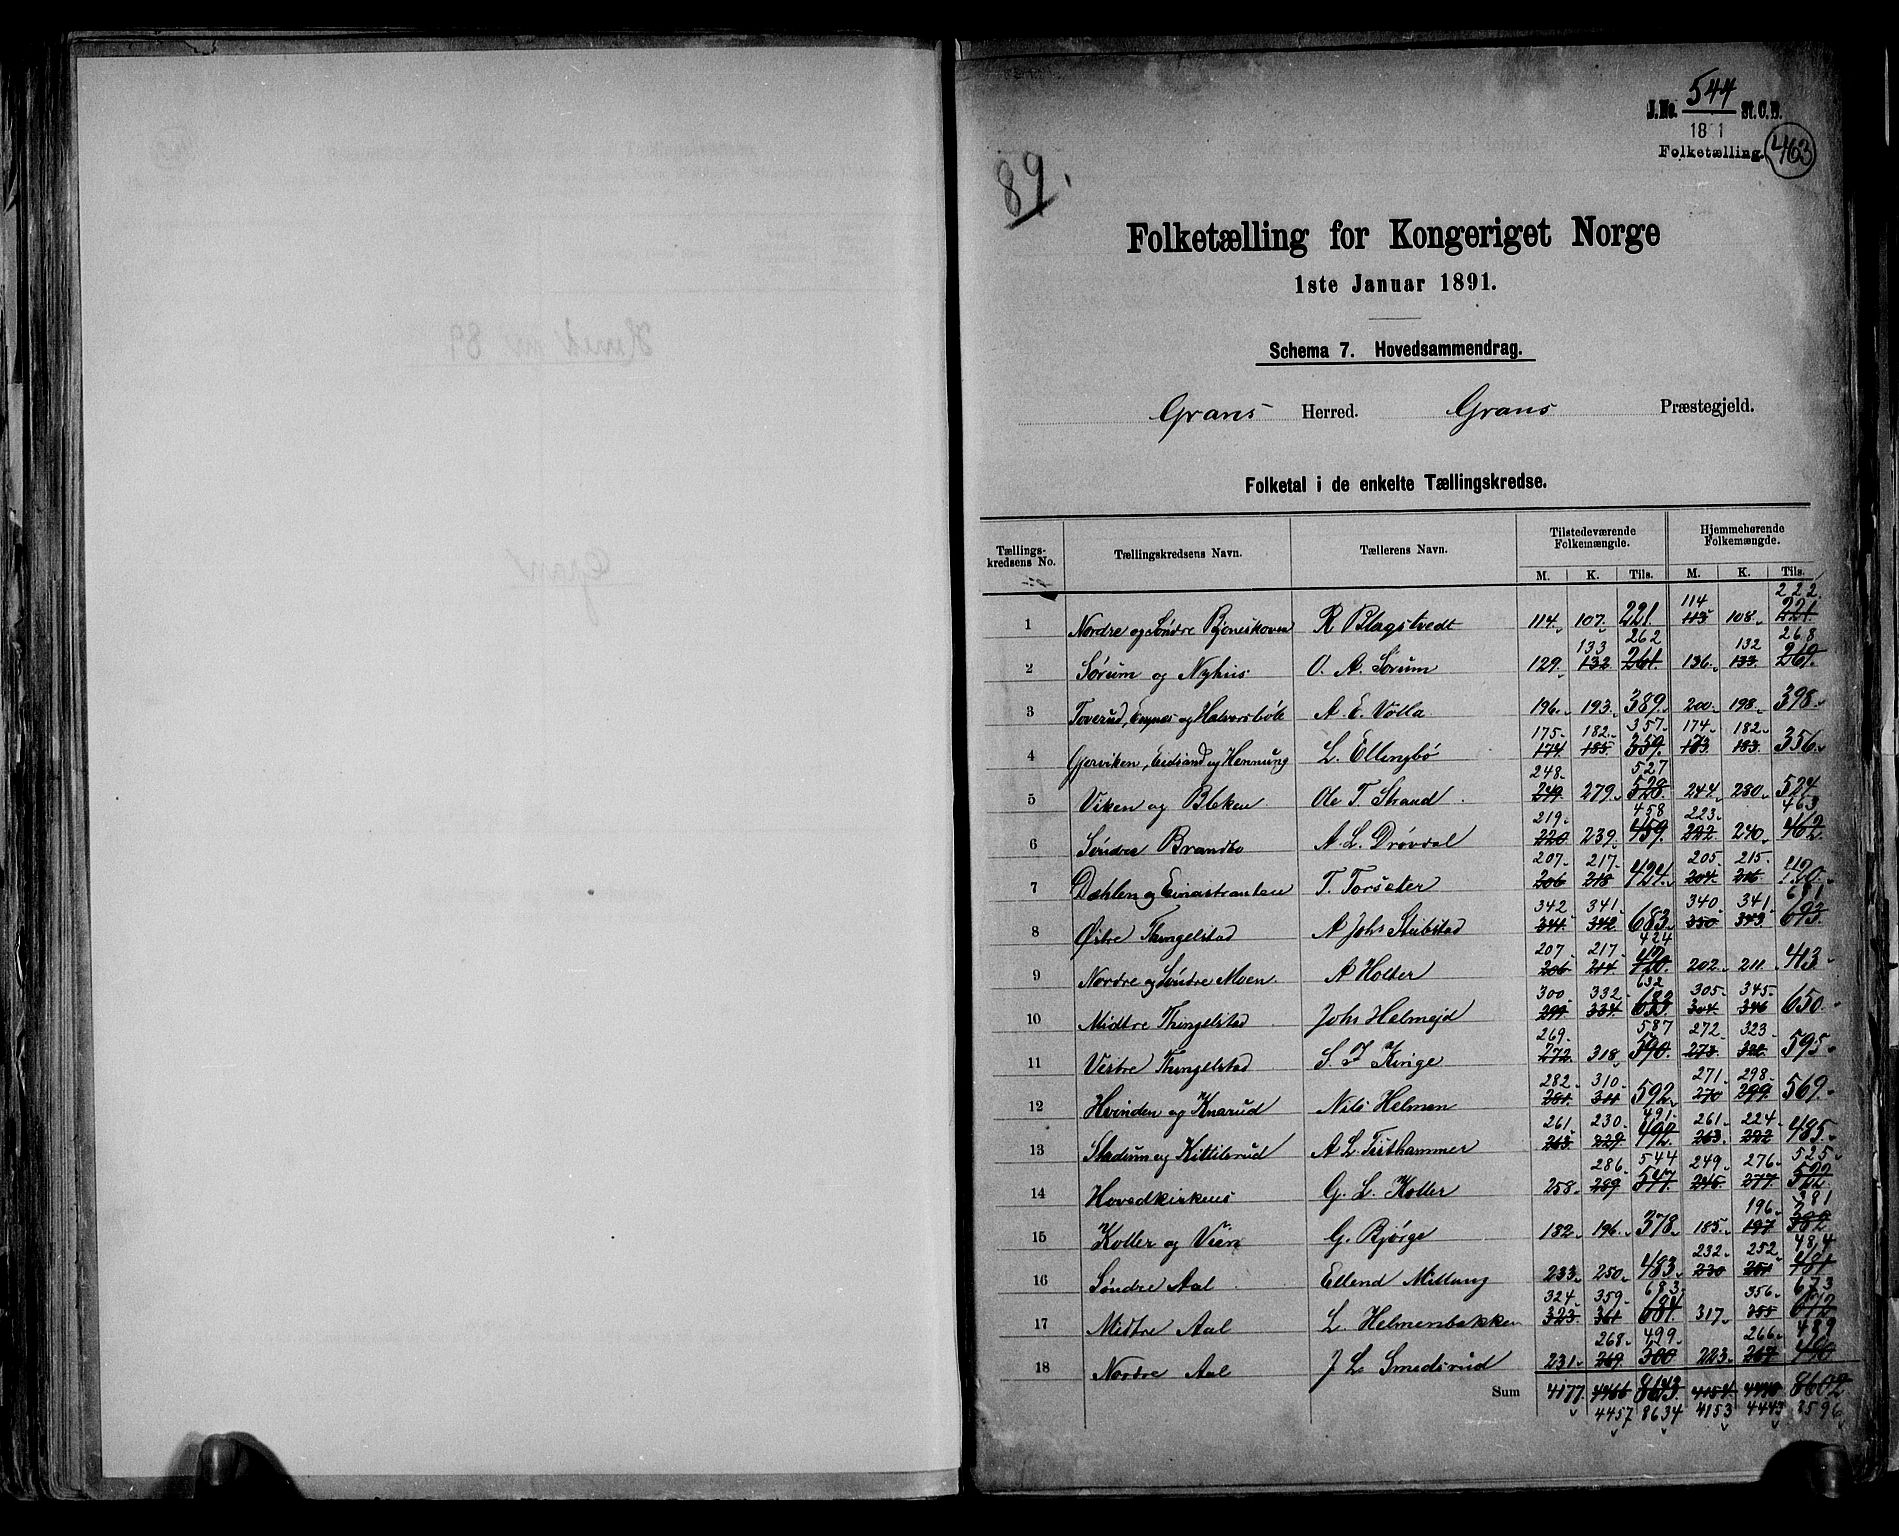 J.No. 544 St.C.B.
1891
Folketælling. 463
89.
Folketælling for Kongeriget Norge
1ste Januar 1891.
Schema 7. Hovedsammendrag.
Grans Herred. Grans Præstegjeld.
Folketal i de enkelte Tællingskredse.
Tællings-kredsens No. Tællingskredsens Navn. Tællerens Navn. Tilstedeværende Folkemængde. Hjemmehørende Folkemængde.
M. K. Tils. M. K. Tils.
114 222.
1 Nordre og Søndre Bjoneskoven R Blagstvedt 114. 107. 221. 113 108. 221.
133 262 132 268
2 Sørum og Nyhus O. A. Sørum 129. 132 261. 136. 133. 269.
3 Toverud, Engnæs og Halvorsbøle A. E. Volla 196. 193. 389. 200. 198. 398.
175. 182. 357. 174. 182.
4 Gjerviken, Eidsand og Hennung L. Ellingbø 174 185 359. 173 183. 356.
248. 527
5 Viken og Bleken Ole T. Strand 249 279. 528. 244. 280. 524.
219. 458 223. 463
6 Søndre Brandbo A. L. Drøvdal 220 239. 459. 222 240. 462.
207. 217. 205. 215.
7 Dæhlen og Einastranden T. Torseter 206 218 424. 204.
342 341. 340. 341. 681
8 Østre Thingelstad A Johs Stubstad 341 342 683. 350 343. 693.
207 217. 424
9 Nordre og Søndre Moen A Holter 206 214 420. 202. 211. 413
300. 332. 632 305. 345.
10 Midtre Thingelstad Johs Helmejd 299. 334. 633 304 346 650.
269. 587 272. 323.
11 Vestre Thingelstad 272. 318. 590. 273. 322. 595.
282. 310. 271. 298.
12 Hvinden og Knarud Nils Helmen 281. 311 592. 270 299. 569.
261. 230. 491. 261. 224.
13 Stadum og Kittilsrud A L Tusthammer 263 229. 492. 263. 222 485.
286. 544 249. 276. 525.
14 Hovedkirkens G. L. Koller 258. 289 547. 245. 277. 522.
196. 381
15 Koller og Vien G. Bjørge 182. 196. 378. 185. 197 382
232. 252. 484
16 Søndre Aal Ellend Millung 233. 250. 483. 230 251 481
324. 359. 683. 356. 673
17 Midtre Aal L. Helmenbakken 323. 361 684. 317. 355 672
268. 499. 266. 489
18 Nordre Aal J L Smedsrud 231. 269 500 223. 267 490
Sum 4177. 4466 8643. 4154. 4448 8602
4457 8634 4153 4443 8596